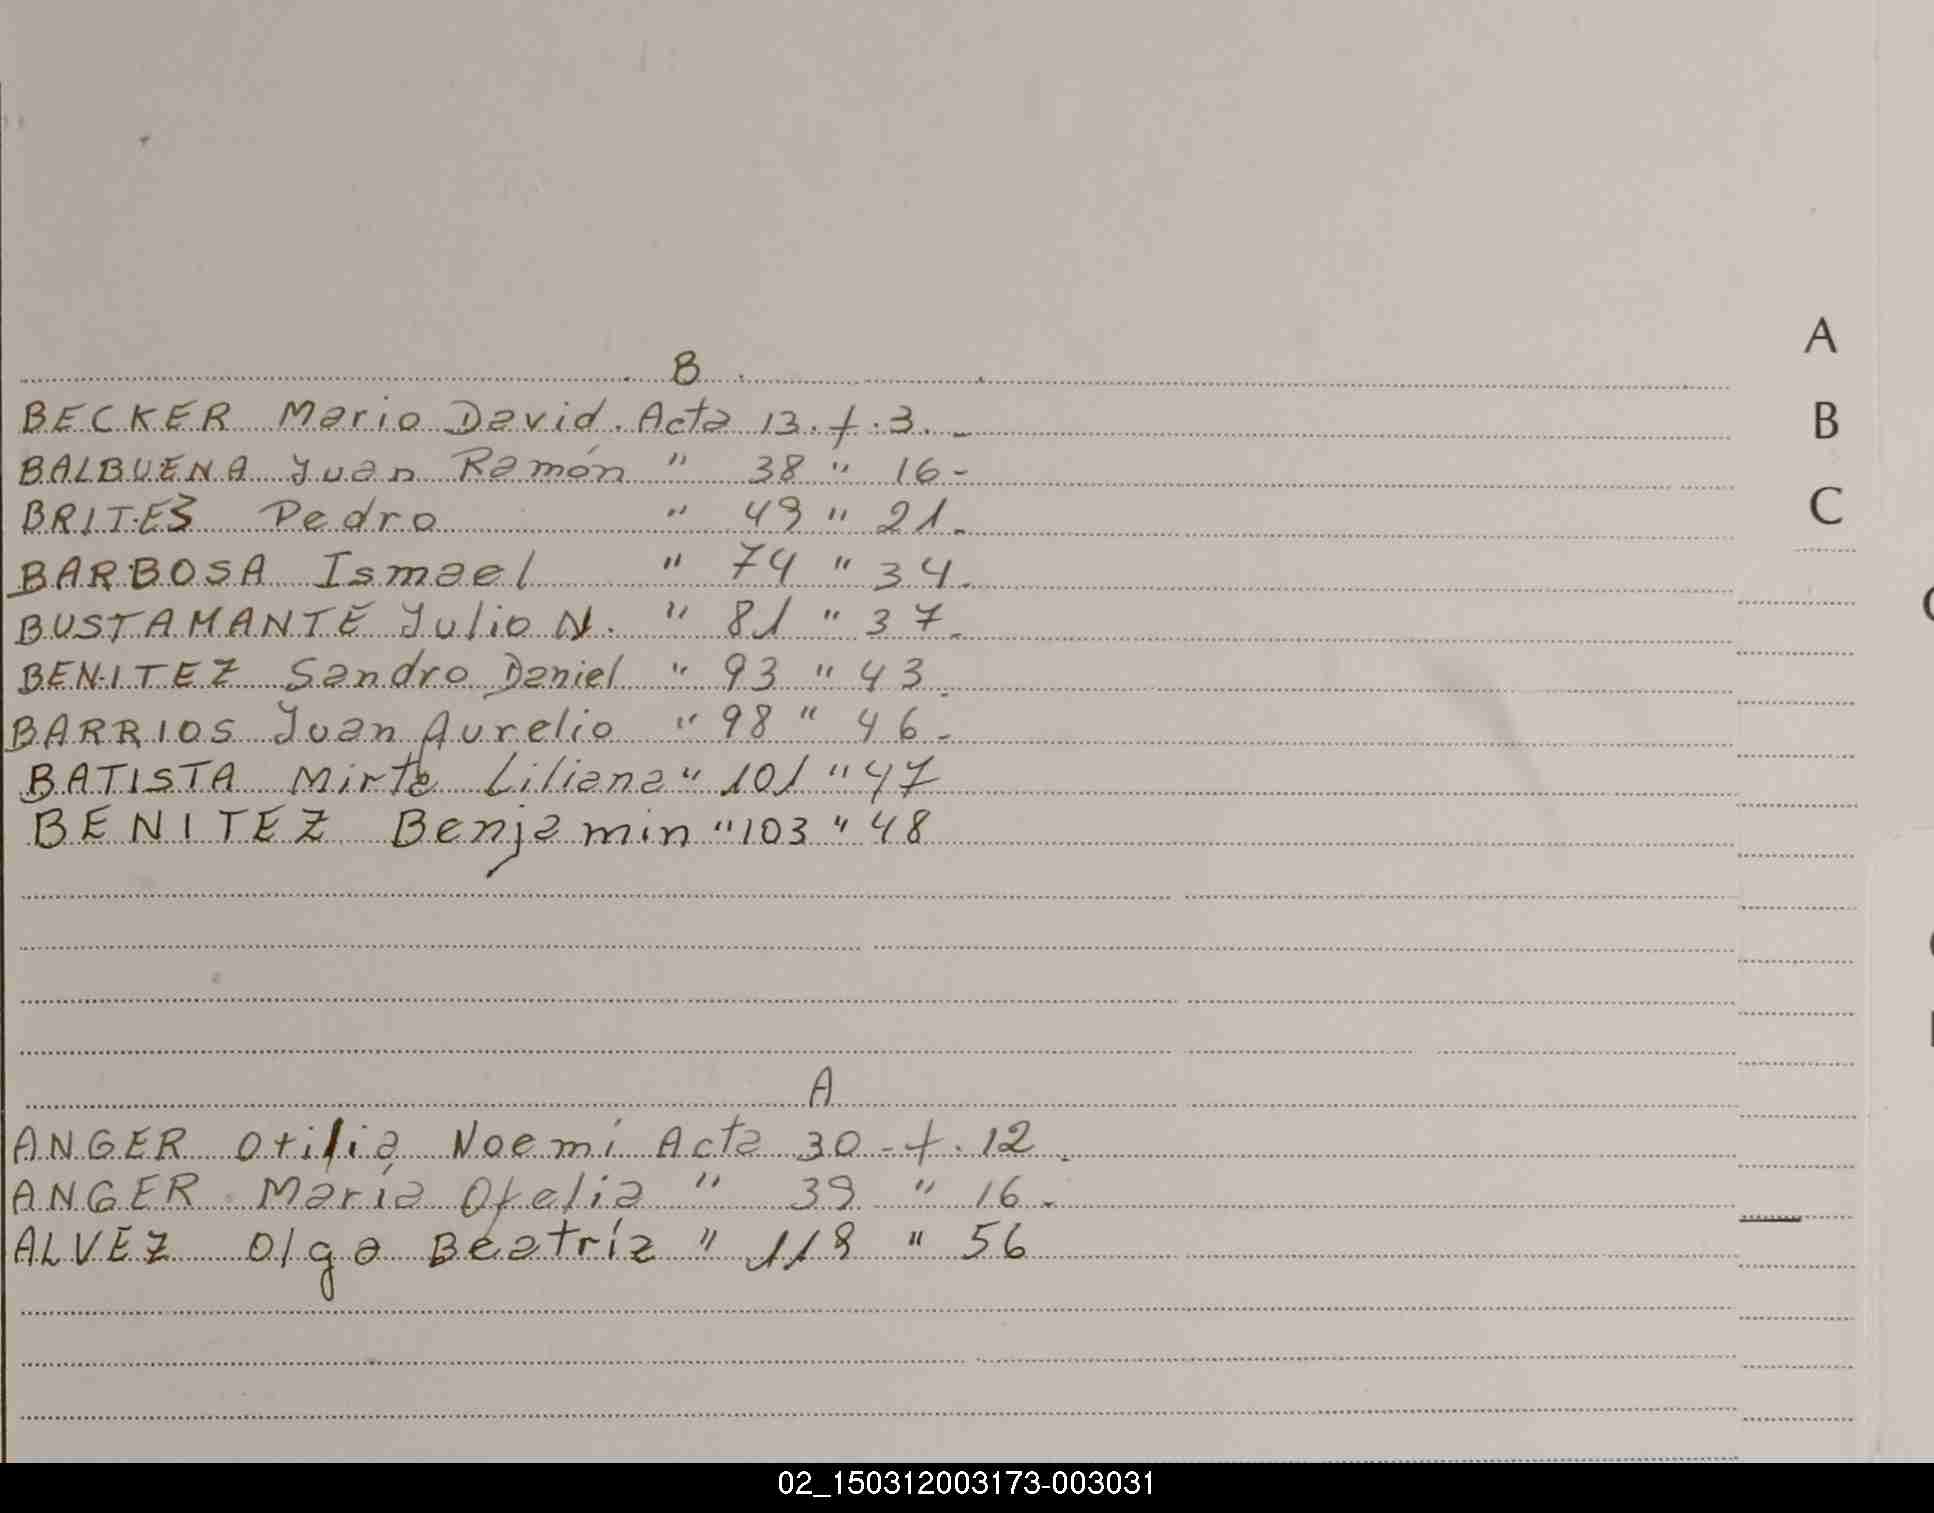 B
BECKER Mario David. Acta 13. f. 3. -
BALBUENA Juan Ramón " 38 " 16 -
BRITES Pedro " 49 " 21.
BARBOSA Ismael " 74 " 34.
BUSTAMANTE Julio N. " 81 " 37.
BENITEZ Sandro Daniel " 93 " 43.
BARRIOS Juan Aurelio " 98 " 46.
BATISTA Mirta Liliana " 101 " 47
BENITEZ Benjamin " 103 " 48
A
ANGER Otilia Noemí Acta 30 - f. 12.
ANGER María Ofelia " 39 " 16.
ALVEZ Olga Beatríz " 118 " 56
A
B
C
02_150312003173-003031